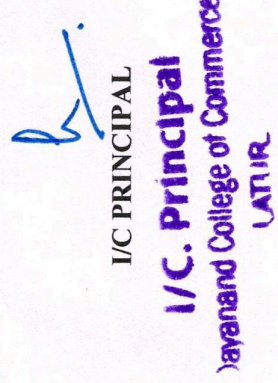 I/C PRINCIPAL
I/C. Principal
ayanand College of Commerce
LATUR